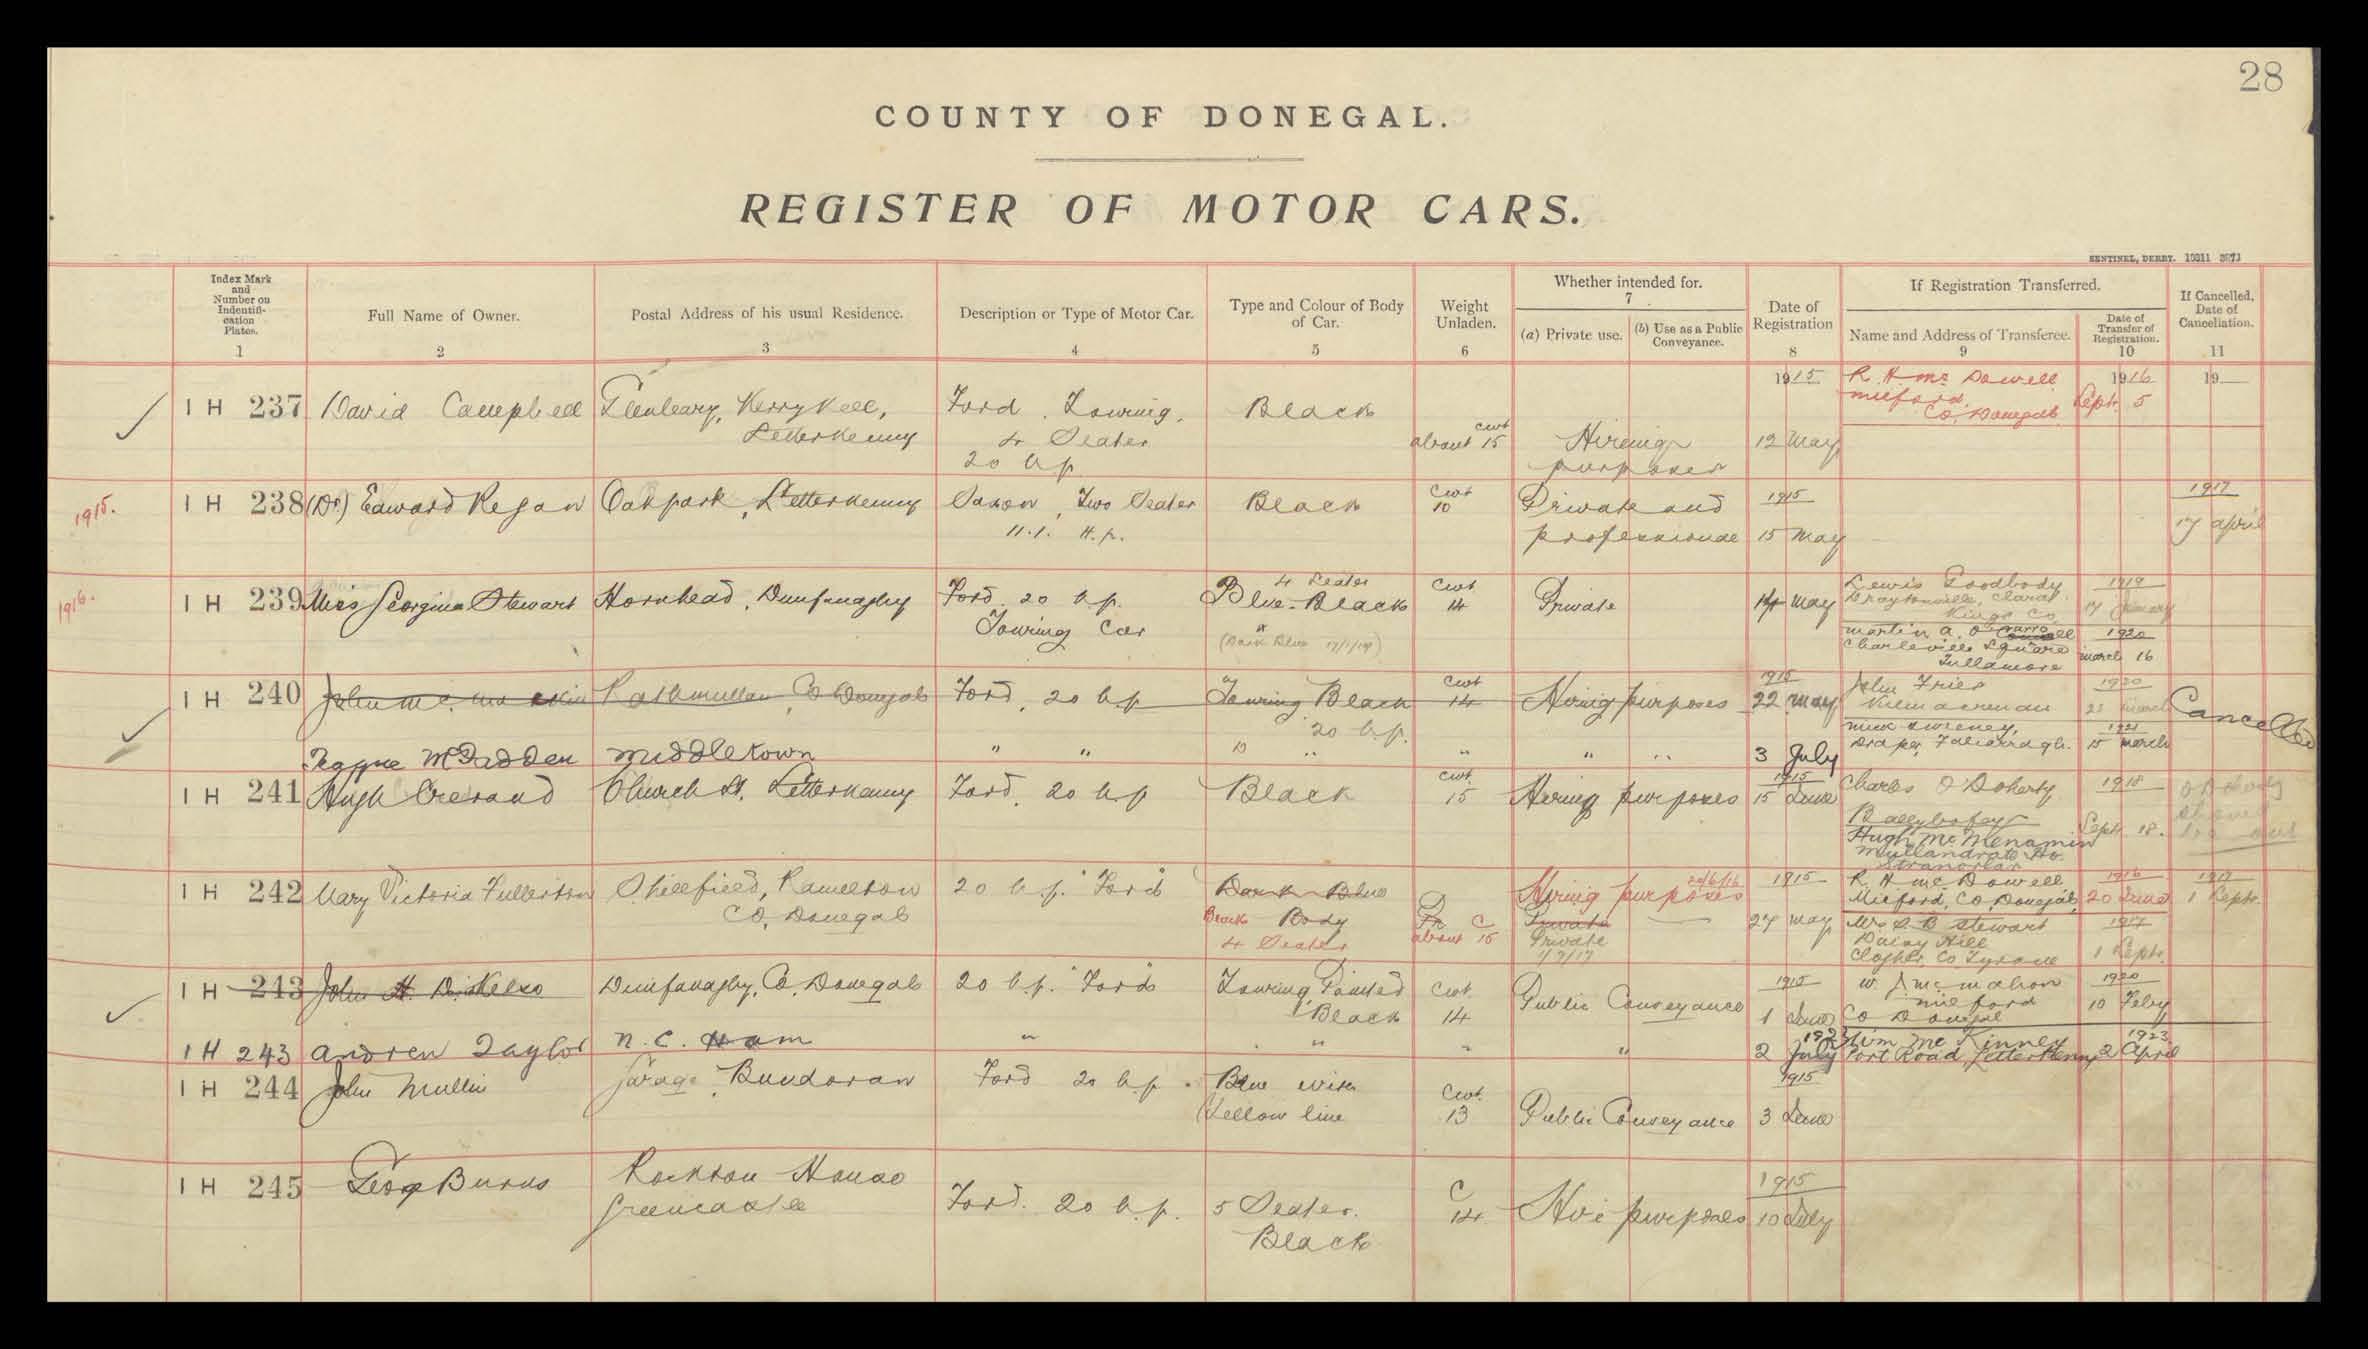 28
COUNTY OF DONEGAL.
REGISTER OF MOTOR CARS.
SENTINEL, DERRY. 10311 3873
Index Mark and Number on Indentifi-cation Plates. 1
Full Name of Owner. 2
Postal Address of his usual Residence. 3
Description or Type of Motor Car. 4
Type and Colour of Body of Car. 5
Weight Unladen. 6
Whether intended for. 7
(a) Private use.
(b) Use as a Public Conveyance.
Date of Registration 8
If Registration Transferred.
Name and Address of Transferee. 9
Date of Transfer of Registration. 10
If Cancelled, Date of Cancellation. 11
IH 237 David Campbell
Glenleary, Kerrykeel,
Letterkenny
Ford, Touring,
4 Seater
20 h.p.
Black
about 15 cwt
Hiring
purposes
1915
12 May
R. H. Mc Dowell
Milford,
Co. Donegal
1916
Sept. 5
19
1915.
IH 238 (Dr) Edward Regan
Oakpark, Letterkenny
Saxon, Two Seater
11.1. H.p.
Black
Cwt
10
Private and
professional
1915
15 May
1917
17 April
1916.
IH 239 Miss Georgina Stewart
Hornhead, Dunfanaghy
Ford 20 h.p.
Touring Car
4 Seater
Blue-Black
(Dark Blue 17/1/19)
Cwt
14
Private
14 May
Lewis Goodbody
Draytonville, Clara
Kings Co
1919
17 January
Martin A. O'
Charleville Square
Tullamore
1920
March 16
IH 240
Rathmullan, Co Donegal
Ford, 20 h.p.
Touring Black
20 h.p.
Cwt
14
Hiring purposes
1915
22 May
John Friel
Kilmacrenan
1920
23 March
Draper, Falcarragh.
1921
15 March
Cancelled
Teague McFadden
Middletown
" "
" "
3 July
IH 241 Hugh Crerand
Church St. Letterkenny
Ford, 20 h.p.
Black
Cwt.
15
Hiring purposes
1915
15 June
Charles O'Doherty
Ballybofey
1918
Sept. 18.
Hugh McMenamin
Stranorlar
IH 242 Mary Victoria Fullerton
Shellfield, Ramelton
Co. Donegal
20 h.p. "Ford"
Dark Blue
Black Body
4 Seater
about 15 C
Hiring purposes 20/6/16
Private
Private
1/9/17
1915
27 May
R. H. Mc Dowell
Milford, Co Donegal
1916
20 June
Mrs S. B Stewart
Daisy Hill
Clogher, Co Tyrone
1917
1 Sept.
1917
1 Sept.
IH 243 John H. D. Kelso
Dunfanaghy, Co. Donegal
20 h.p. "Ford"
Touring, Painted
Black
Cwt.
14
Public Conveyance
1915
1 June
W. J McMahon
Milford
Co Donegal
1920
10 Feby
IH 243 Andrew Taylor
N.C. Ham
"
"
"
"
2 July
Wm Mc Kinney
Port Road, Letterkenny
1923
2 April
IH 244 John Mullin
Garage, Bundoran
Ford 20 h.p.
Blue with
Yellow line
Cwt.
13
Public Conveyance
1915
3 June
IH 245 Geog Burns
Rockton House
Greencastle
Ford. 20 h.p.
5 Seater.
Black
C
14
Hire purposes
1915
10 July